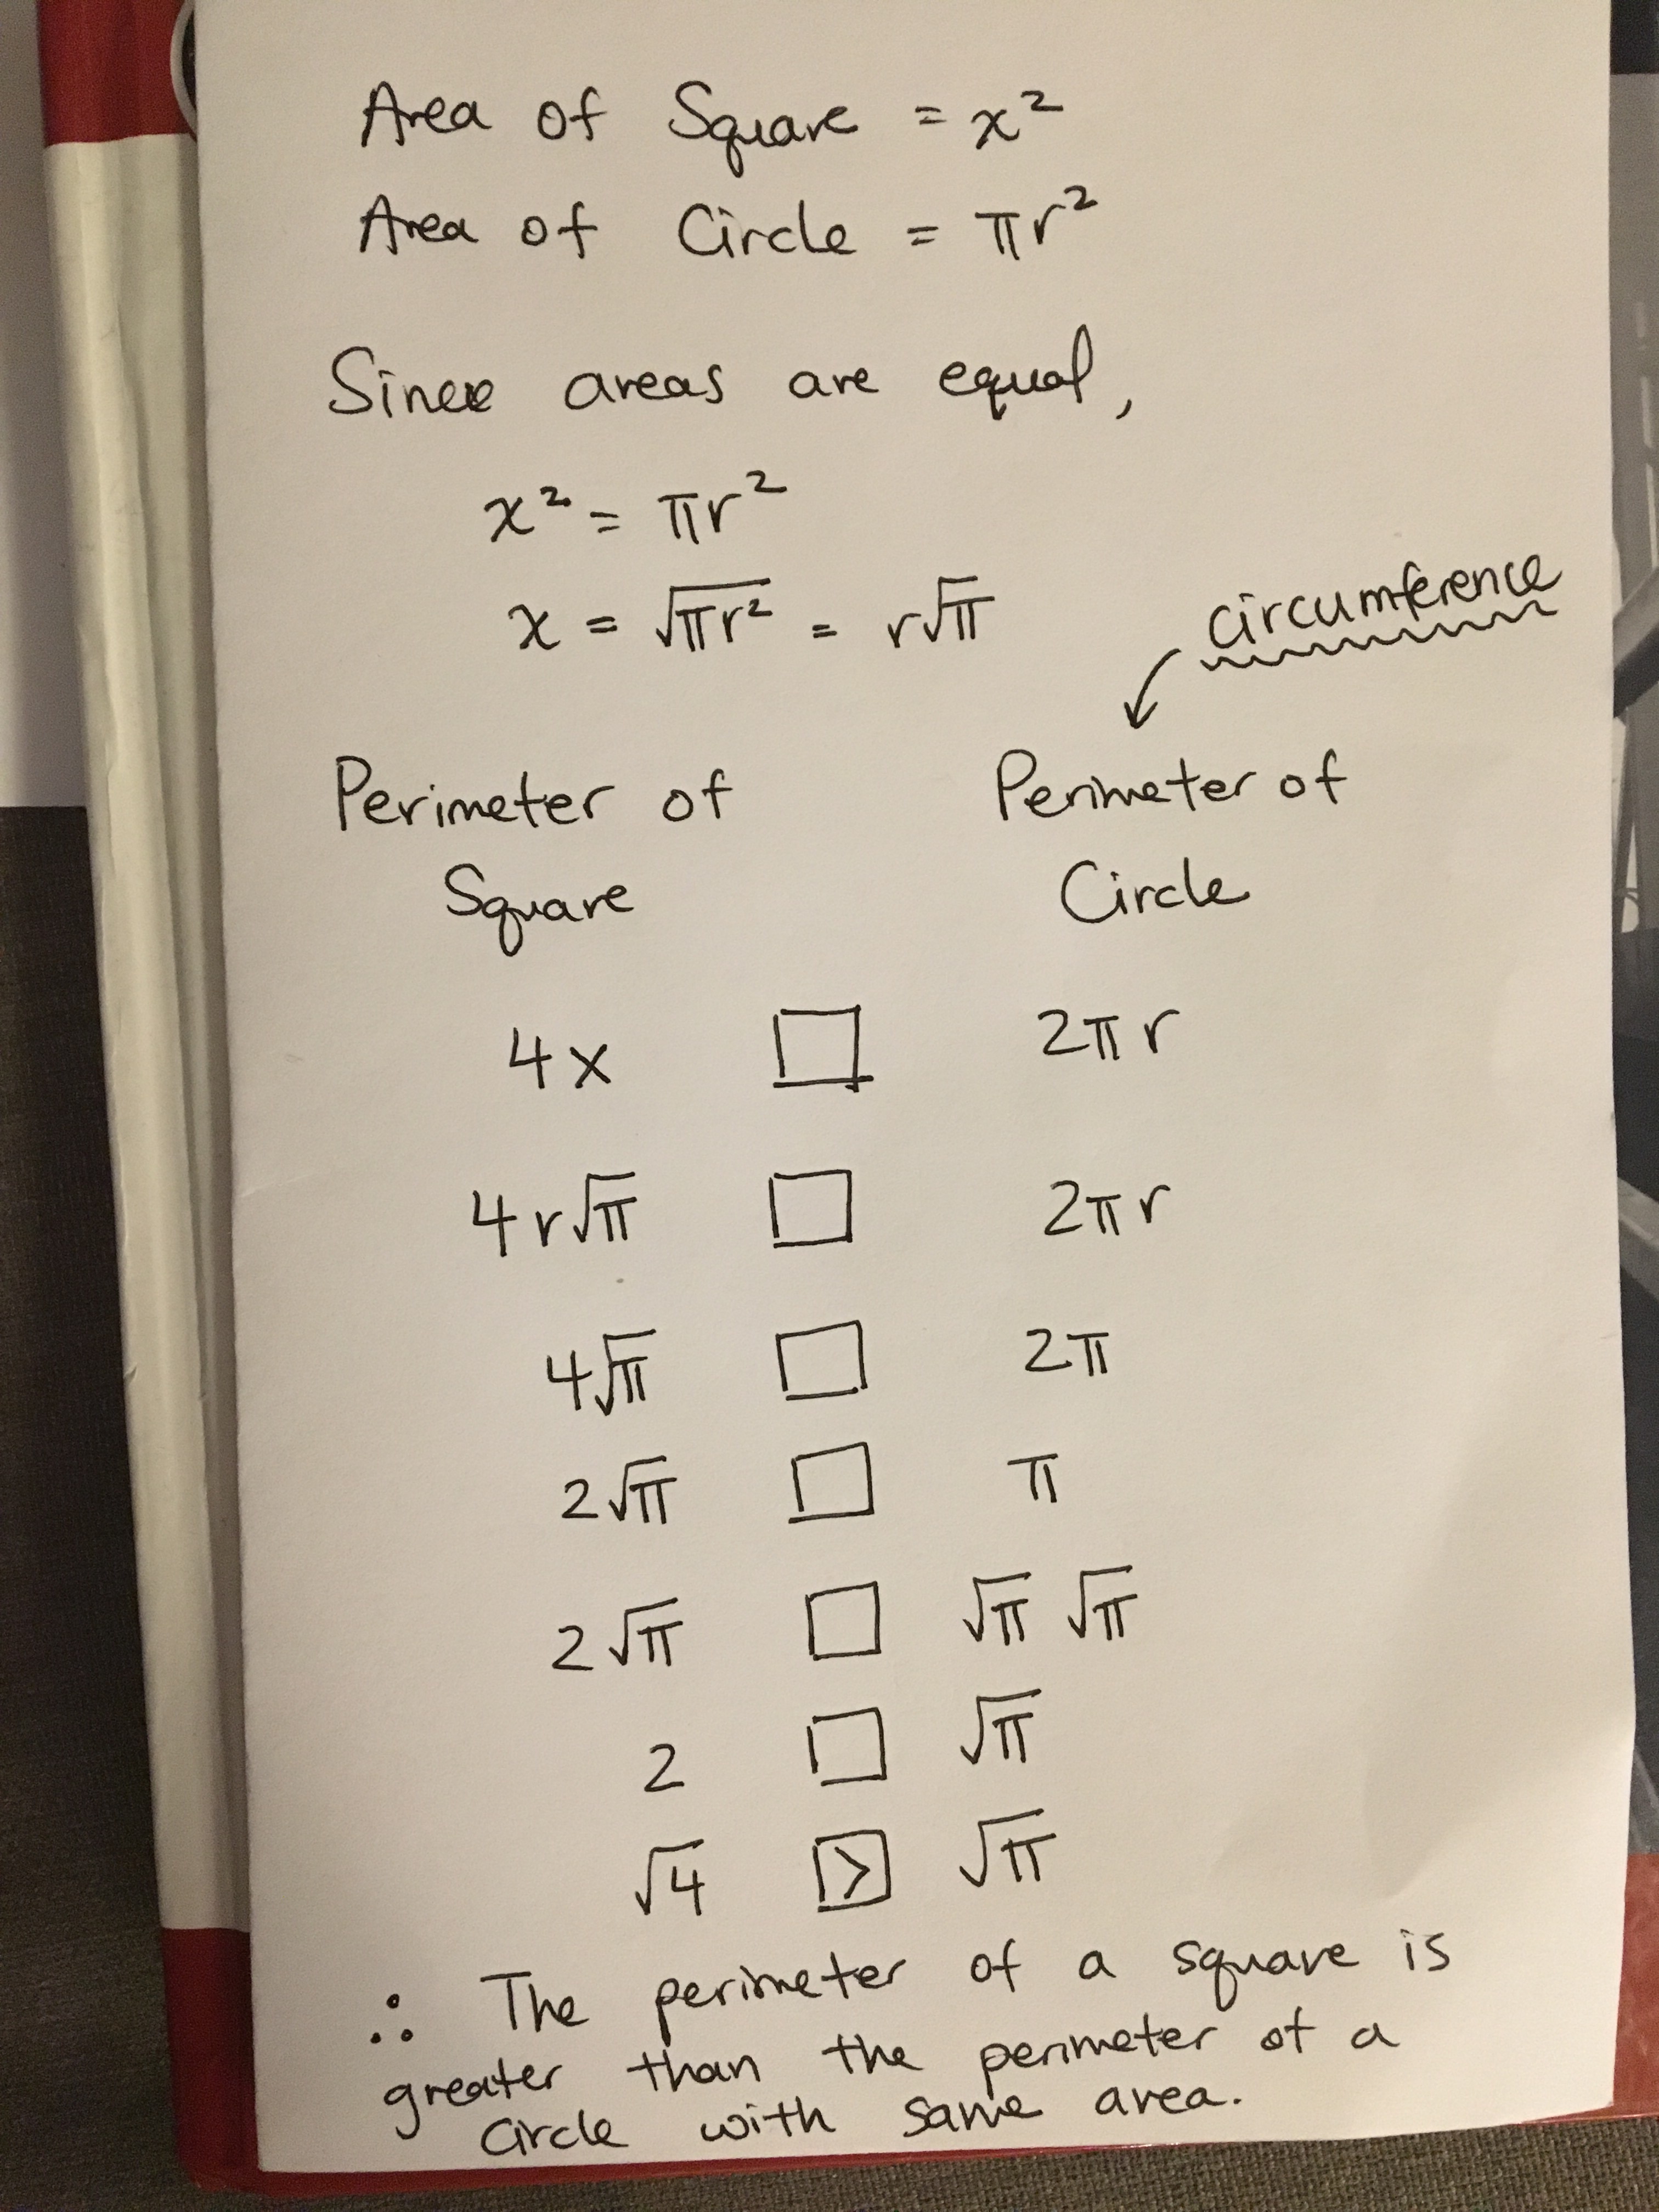 Area of Square = x²
Area of Circle = πr²
Since areas are equal,
x² = πr²
x = √πr² = r√π
circumference
Perimeter of Square
Perimeter of Circle
4x □ 2πr
4r√π □ 2πr
4√π □ 2π
2√π □ π
2√π □ √π √π
2 □ √π
√4 > √π
∴ The perimeter of a square is
greater than the perimeter of a
circle with same area.